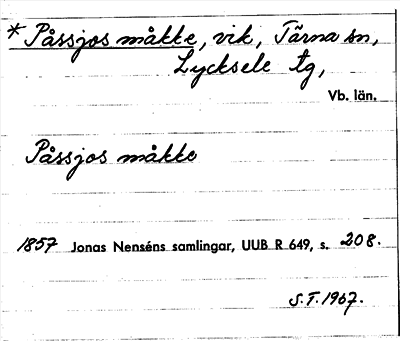 * Påssjos måkke, vik, Tärna sn,
Lycksele tg,
Vb. län.
Påssjos måkke
1857 Jonas Nenséns samlingar, UUB R 649, s. 208.
S.F. 1967.